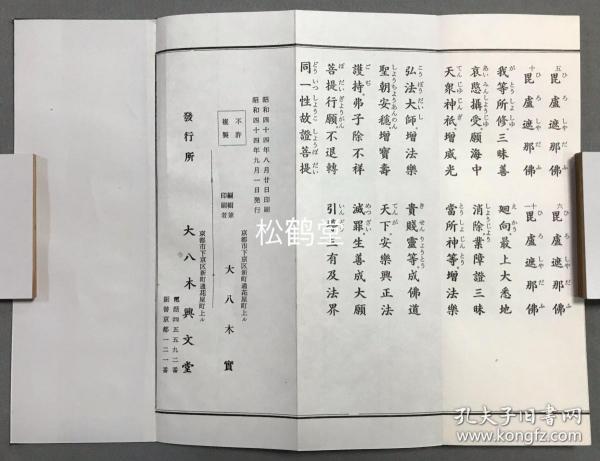 五毘盧遮那佛　六毘盧遮那佛
十毘盧遮那佛　十一毘盧遮那佛
我等所修三昧善　廻向最上大悉地
哀愍攝受願海中　消除業障證三昧
天衆神祇增威光　當所神等增法樂
弘法大師增法樂　貴賤靈等成佛道
聖朝安穩增寶壽　天下安樂興正法
護持弟子除不祥　滅罪生善成大願
菩提行願不退轉　引導三有及法界
同一性故證菩提
昭和四十四年八月廿日印刷
昭和四十四年九月一日発行
不許複製
京都市下京区新町通花屋町上ル
編輯兼印刷者　大八木實
京都市下京区新町通花屋町上ル
發行所　大八木興文堂
電話四五五九二番
振替京都一二一番
松鹤堂
孔夫子旧书网
www.kongfz.com